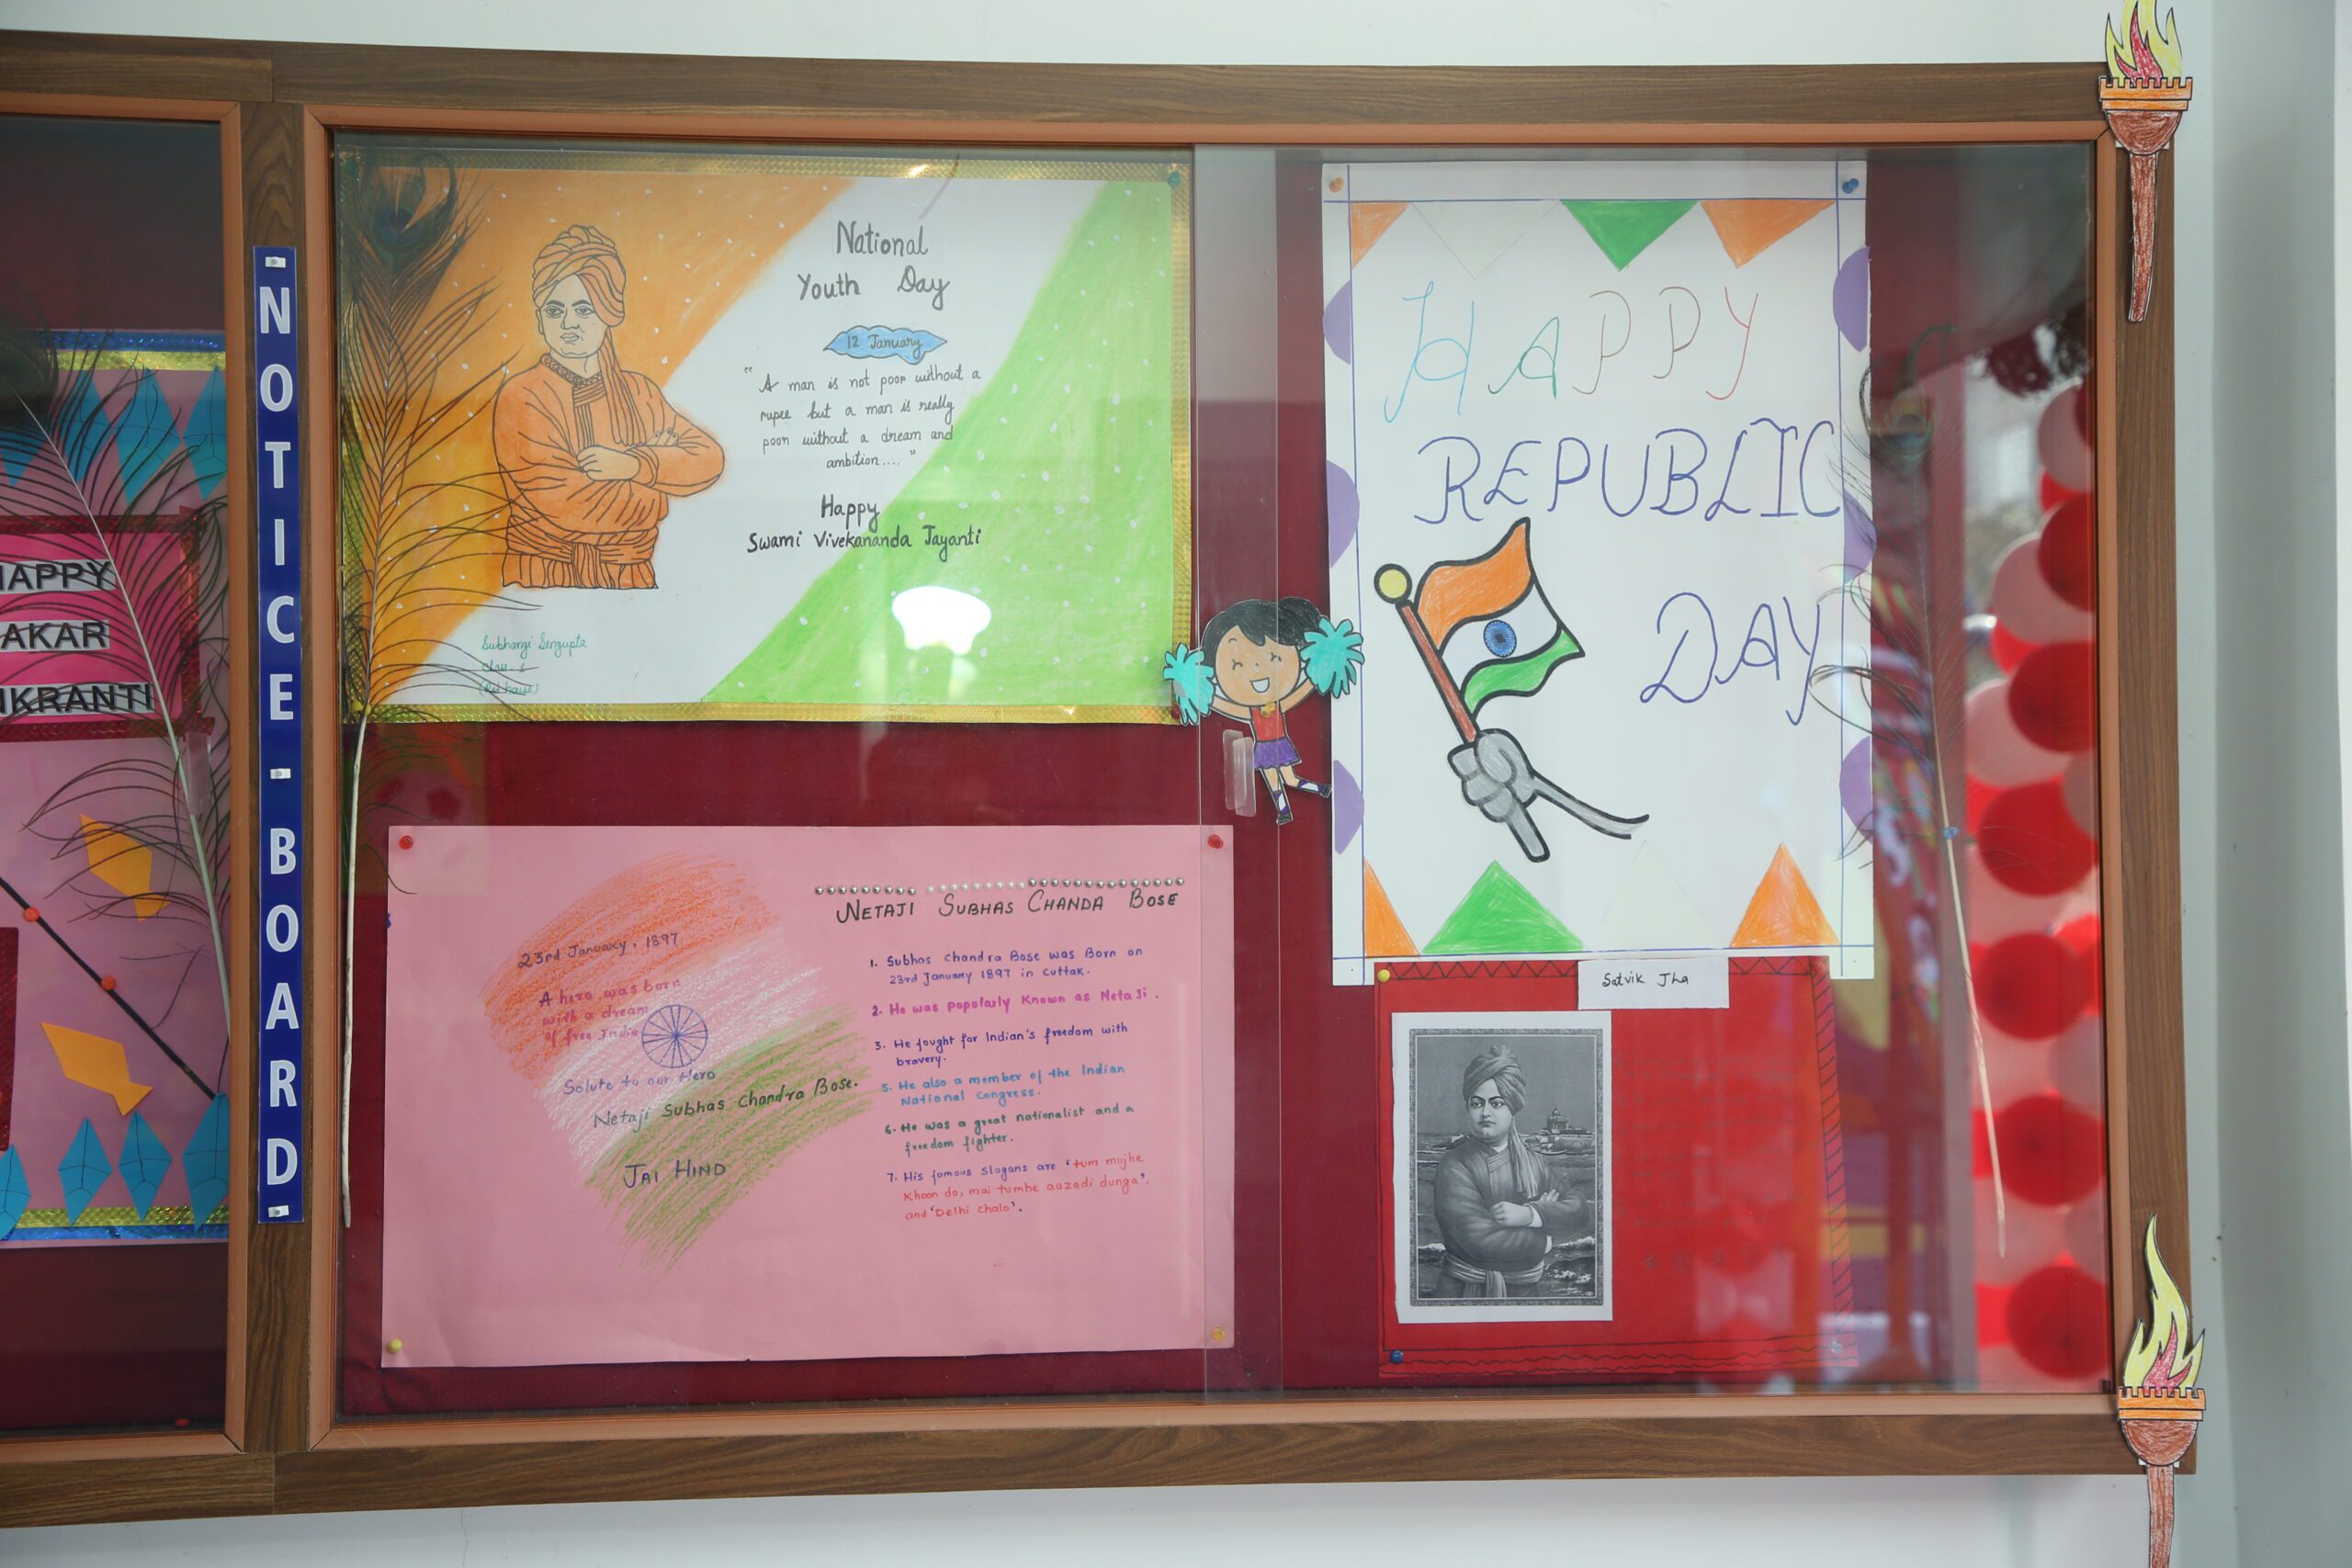 HAPPY
AKAR
NKRANTI
NOTICE-BOARD
National
Youth Day
12 January
"A man is not poor without a
rupee but a man is really
poor without a dream and
ambition...."
Happy
Swami Vivekananda Jayanti
Subhangi Sengupta
HAPPY
REPUBLIC
DAY
Satvik Jha
23rd January, 1897
A hero was born
with a dream
of free India
Salute to our Hero
Netaji Subhas Chandra Bose.
JAI HIND
NETAJI SUBHAS CHANDA BOSE
1. Subhas Chandra Bose was Born on
23rd January 1897 in Cuttak.
2. He was popolarly Known as NetaJi.
3. He fought for Indian's freedom with
bravery.
5. He also a member of the Indian
National Congress.
6. He was a great nationalist and a
freedom fighter.
7. His famous slogans are 'tum mujhe
Khoon do, mai tumhe aazadi dunga',
and 'Delhi chalo'.